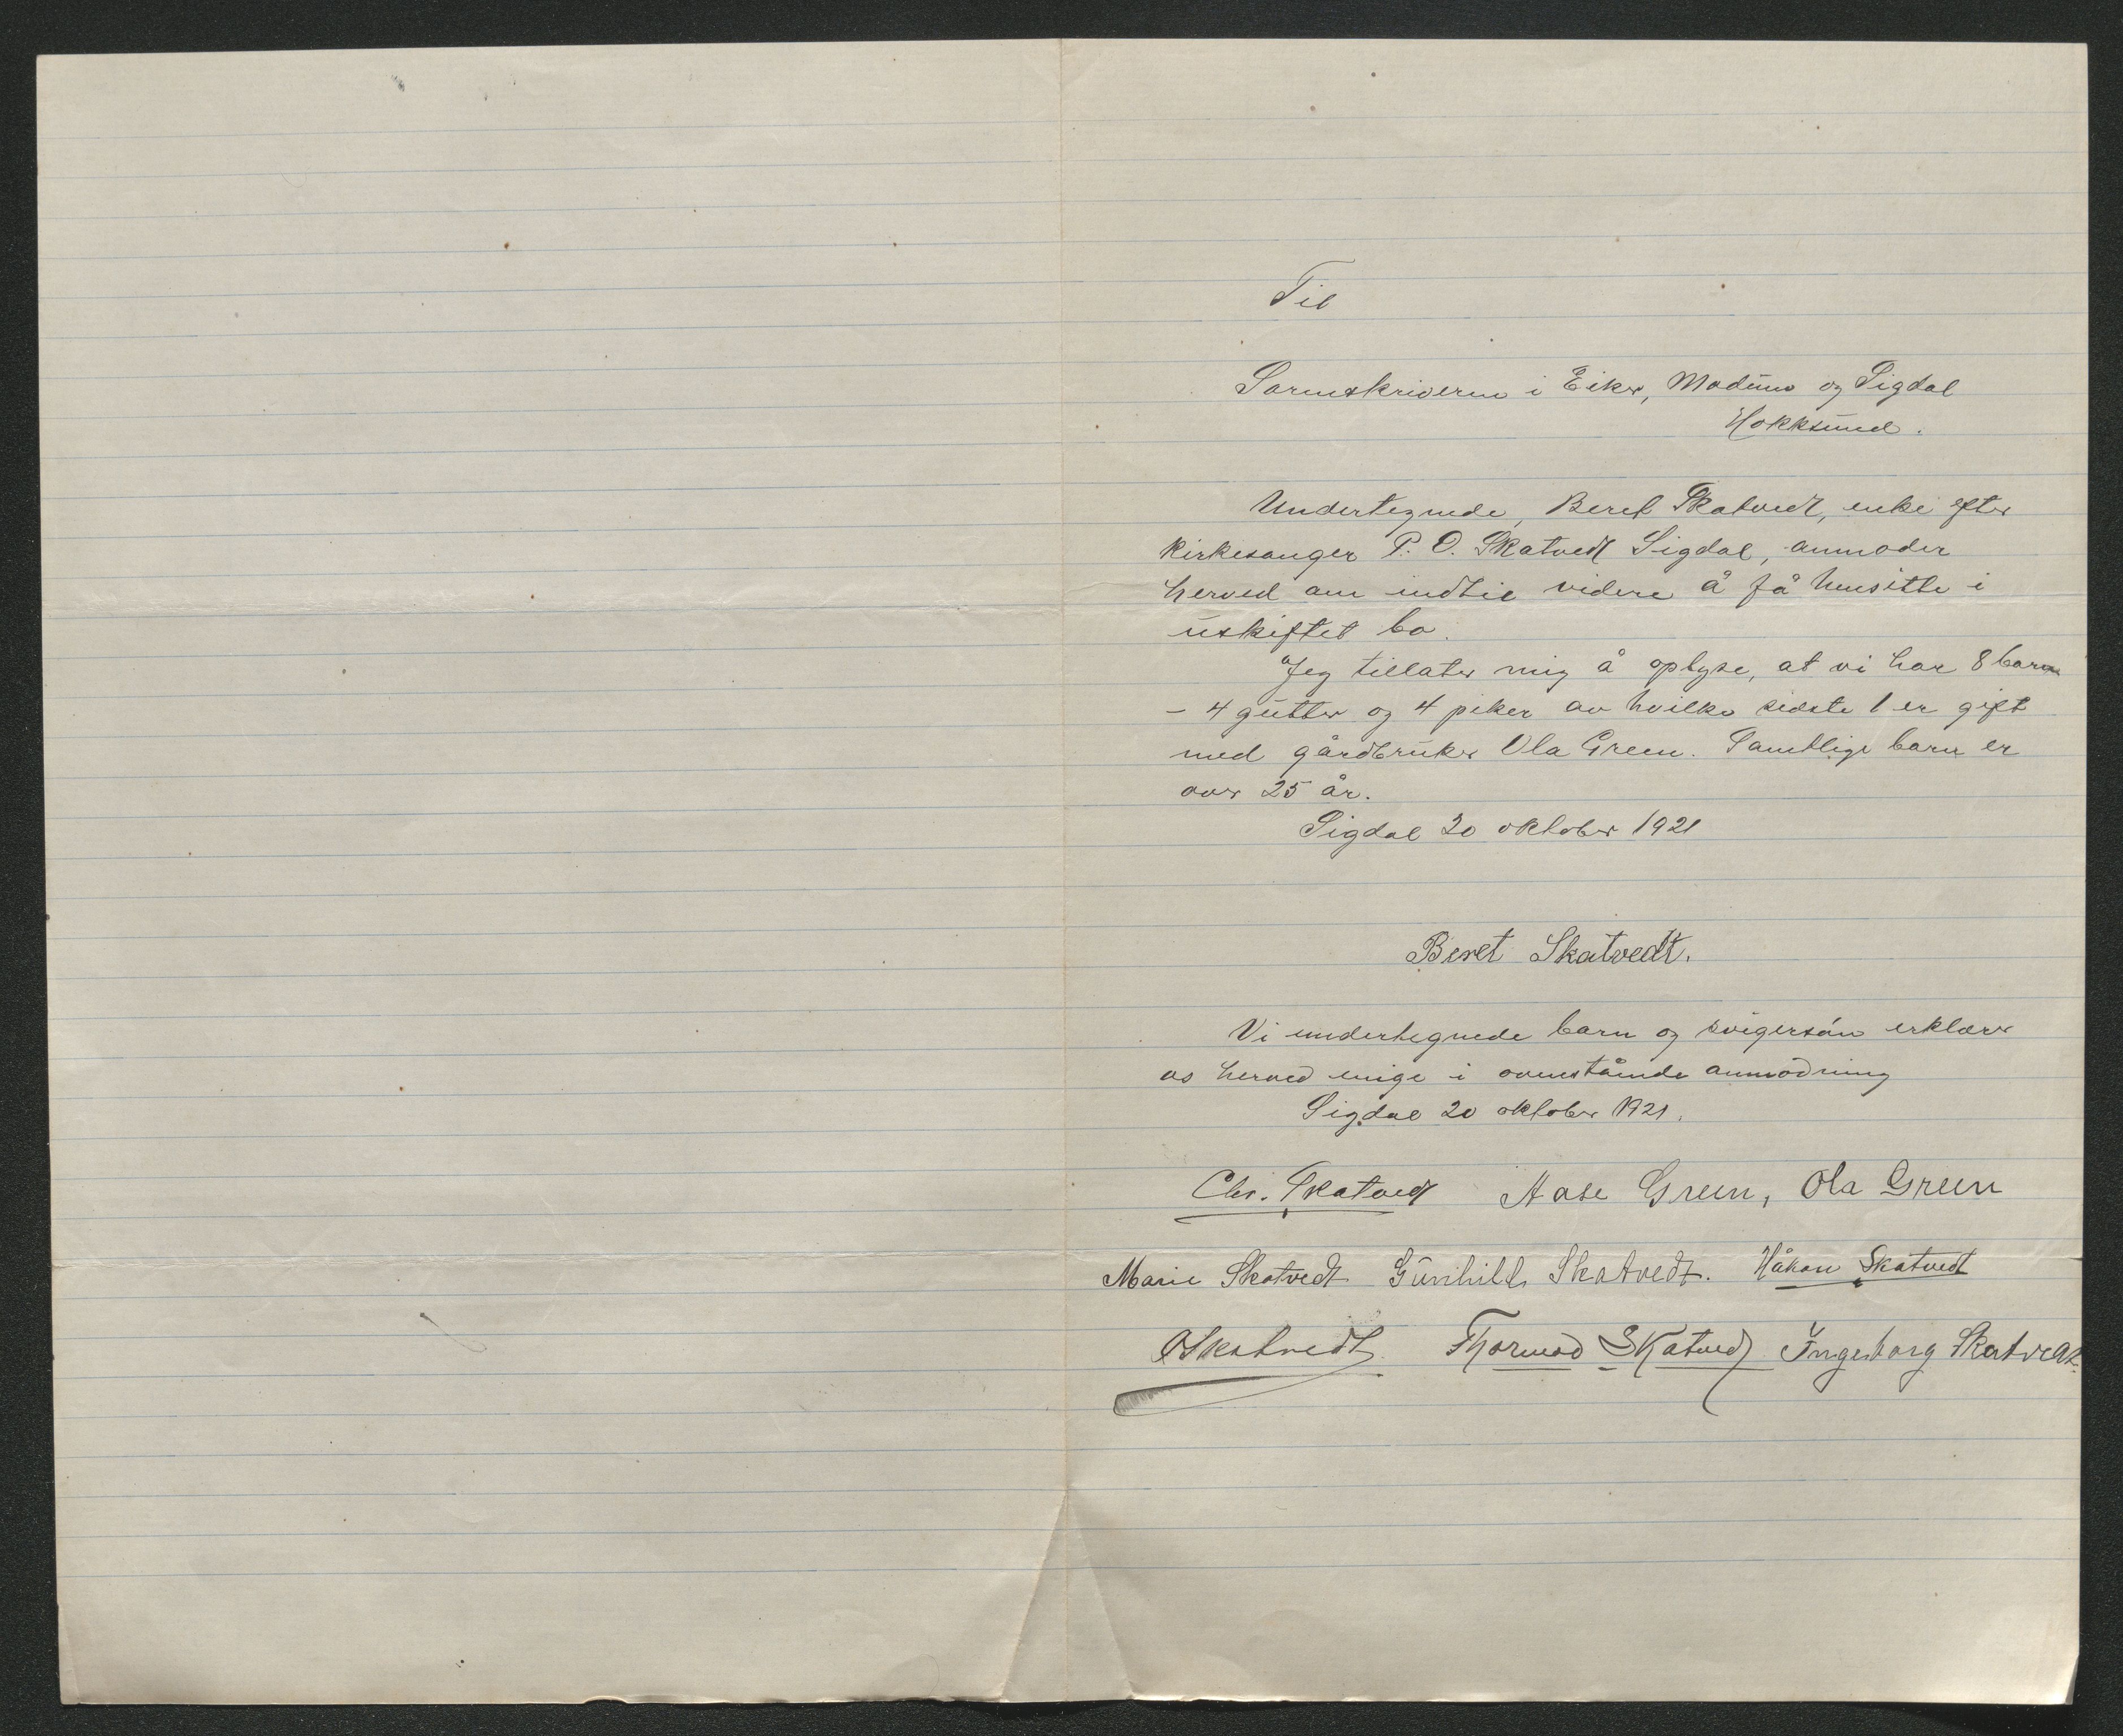 Til
Sorenskriveren i Eiker, Modum og Sigdal
Hokksund.
Undertegnede, Beret Skatvedt, enke efter
kirkesanger P. O. Skatvedt Sigdal, anmoder
herved om indtil videre å få hensitte i
uskiftet bo.
Jeg tillater mig å oplyse, at vi har 8 barn
- 4 gutter og 4 piker av hvilke sidste 1 er gift
med gårdbruker Ola Green. Samtlige barn er
over 25 år.
Sigdal 20 oktober 1921
Beret Skatvedt.
Vi undertegnede barn og svigersön erklærer
os herved enige i ovenstående anmodning
Sigdal 20 oktober 1921.
Chr. Skatvedt Aase Green, Ola Green
Marie Skatvedt Gunhild Skatvedt. Håkon Skatvedt
O Skatvedt Thormod Skatvedt Ingeborg Skatvedt